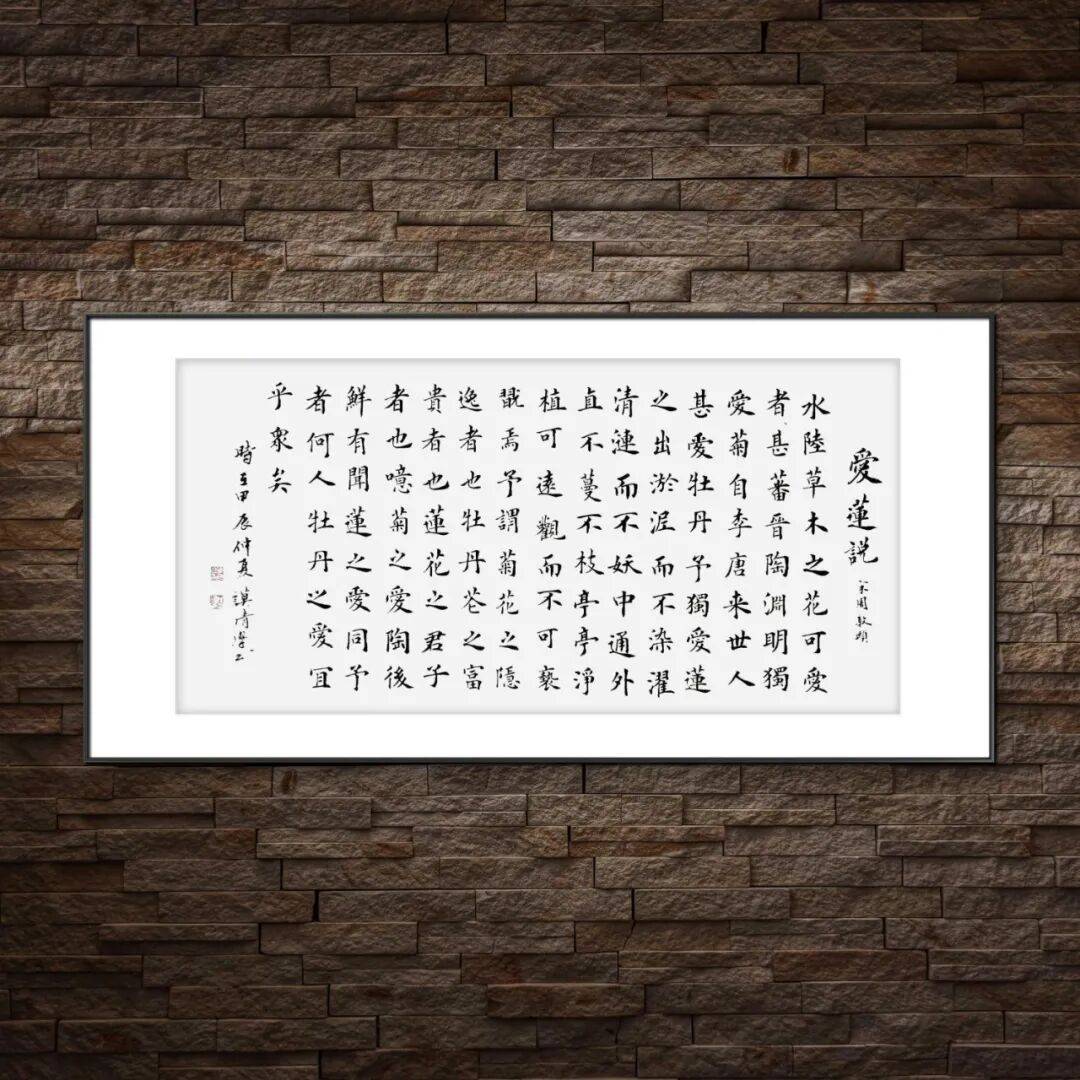 愛蓮説
宋周敦頤
水陸草木之花可愛
者甚蕃晉陶淵明獨
愛菊自李唐来世人
甚愛牡丹予獨愛蓮
之出淤泥而不染濯
清漣而不妖中通外
直不蔓不枝亭亭淨
植可遠觀而不可褻
翫焉予謂菊花之隱
逸者也牡丹花之富
貴者也蓮花之君子
者也噫菊之愛陶後
鮮有聞蓮之愛同予
者何人牡丹之愛宜
乎衆矣
時在甲辰仲夏